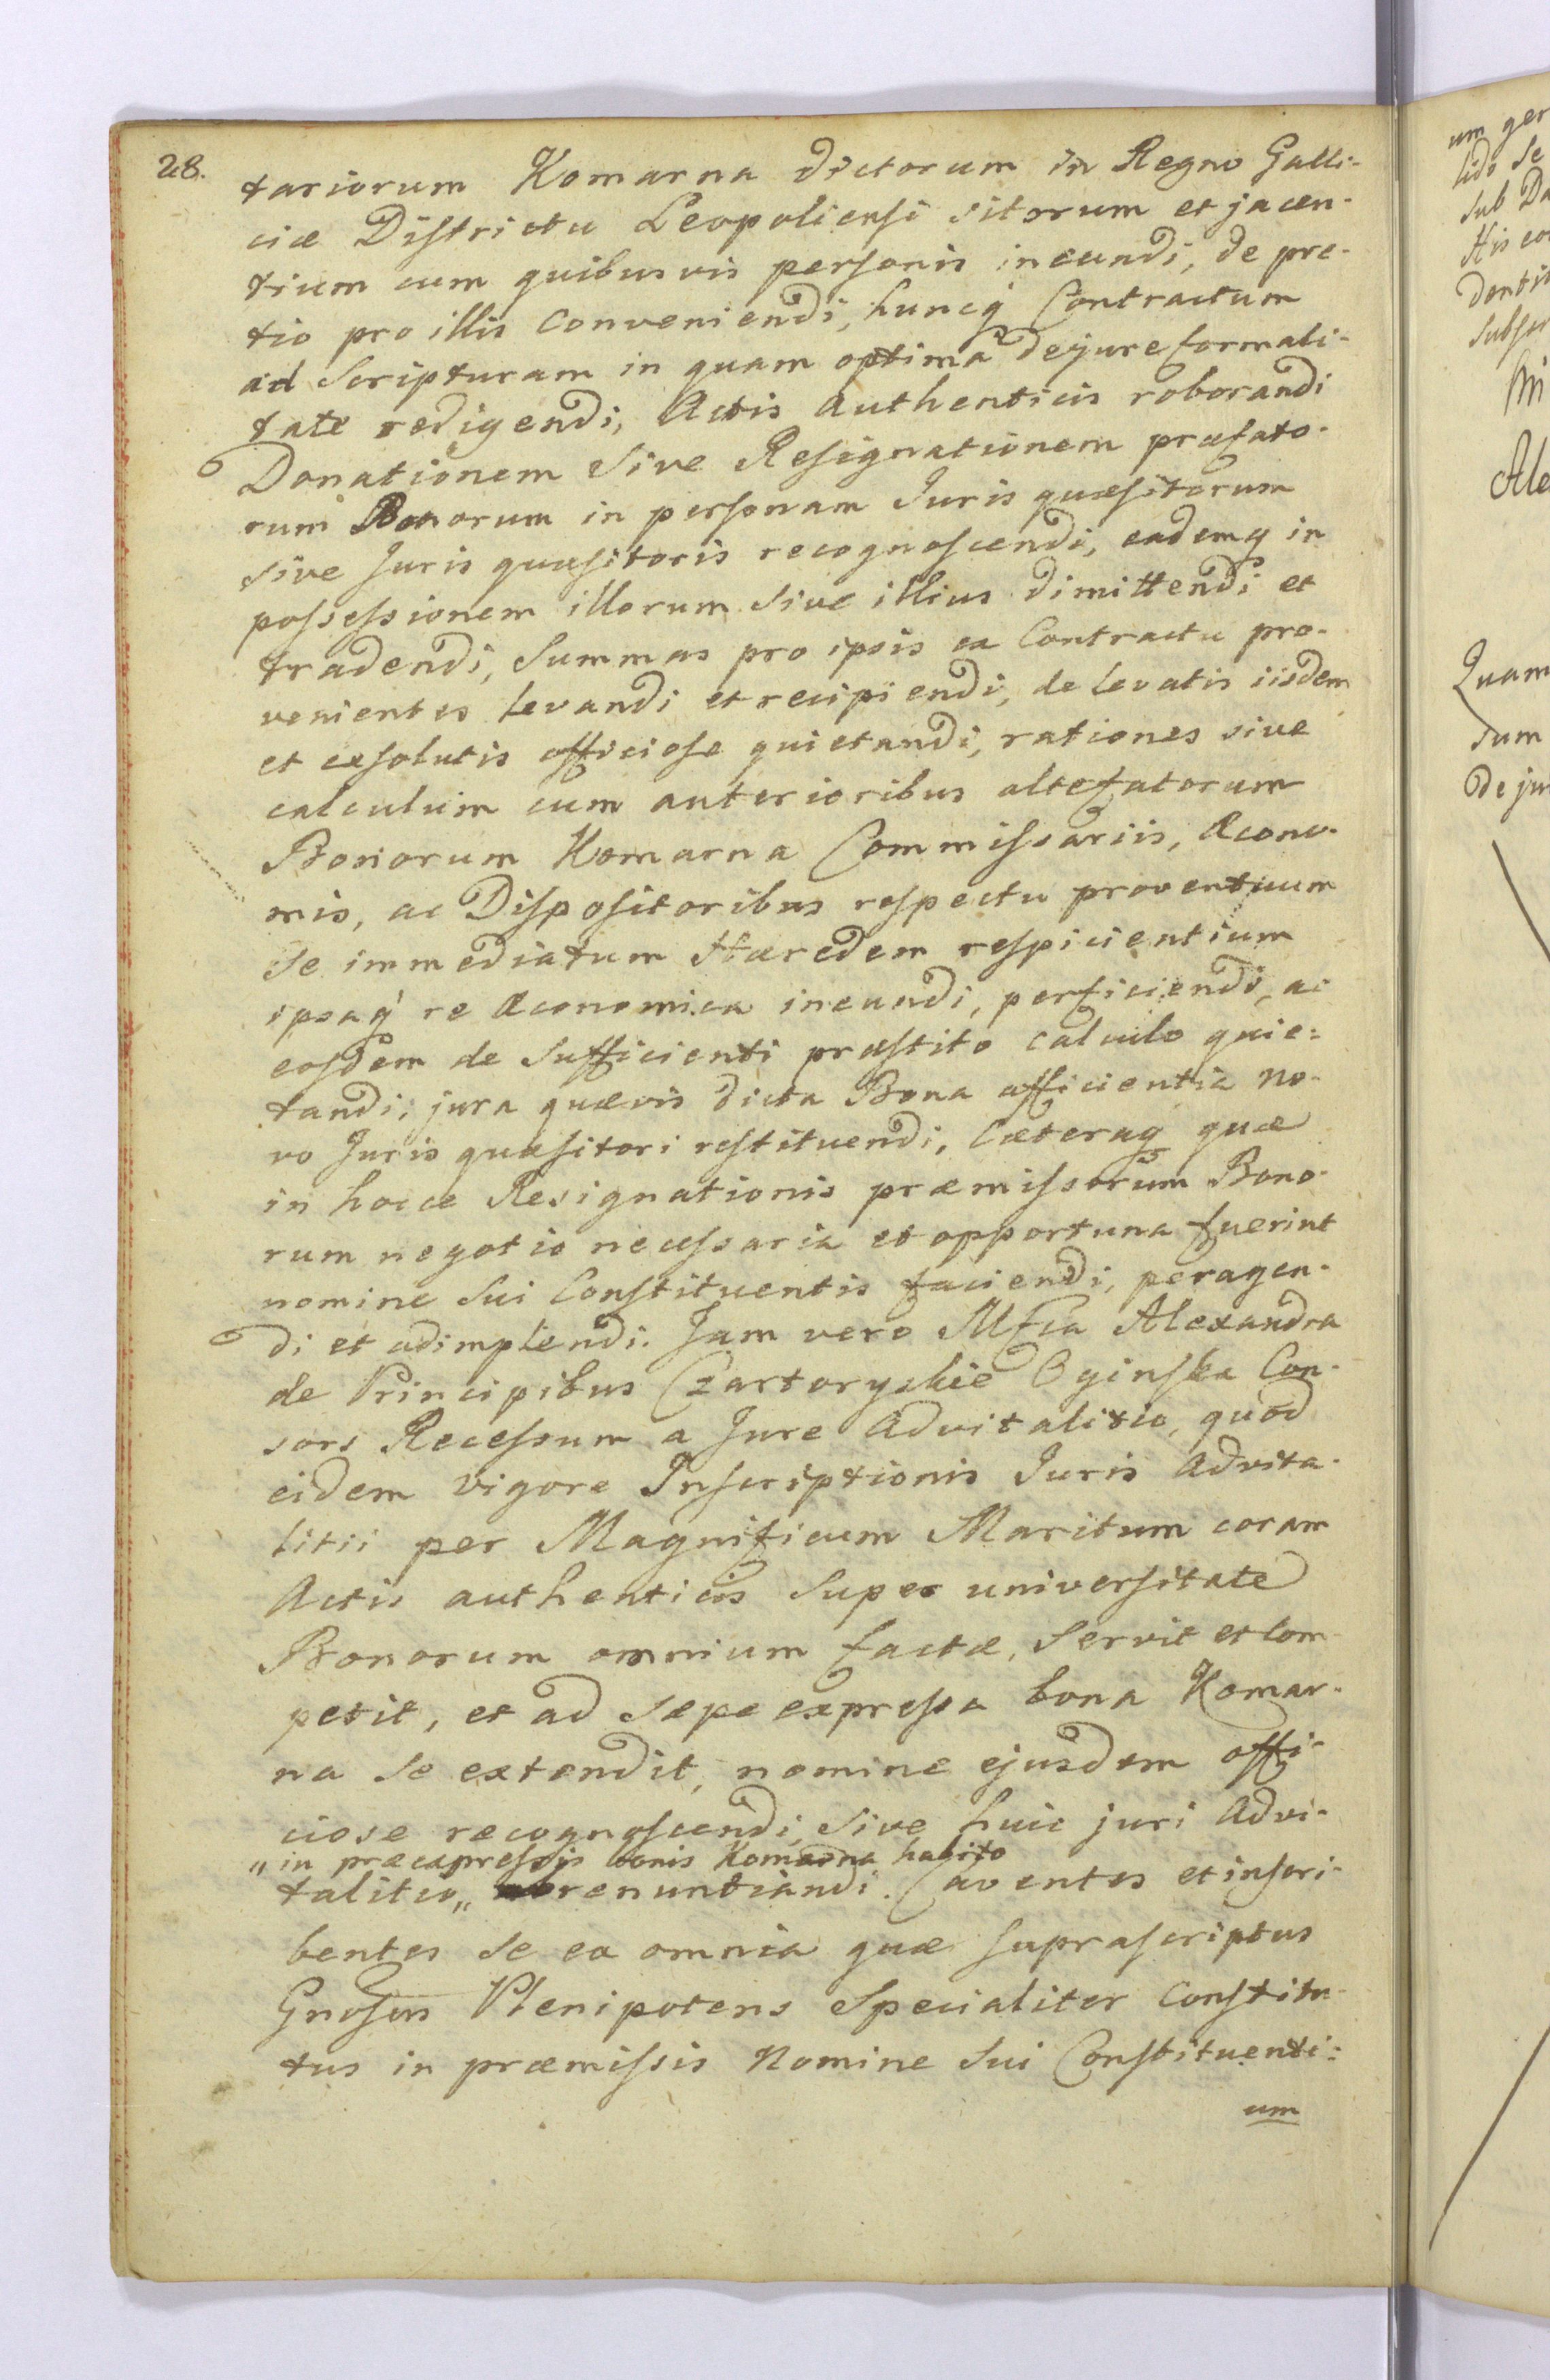 28.
tariorum Komarna dictorum in Regno Galli-
ciæ Districtu Leopoliensi sitorum et jacen-
tium cum quibusvis personis ineundi, de pre-
tio pro illis Conveniendi, huncq́ Contractum
ad Scripturam in quam optima de jure formali-
tate redigendi, Actis Authenticis roborandi
Donationem Sive Resignationem præfato-
rum Bonorum in personam Juris quæsitorum
sive Juris quæsitoris recognoscendi, eademq́ in
possessionem illorum Sive illius dimittendi et
tradendi, Summas pro ipsis ex Contractu pro-
venientes levandi et recipiendi, de levatis iisdem
et exsolutis officiose quietandi, rationes sive
calculum cum anterioribus altefatorum
Bonorum Komarna Commissariis, Æcono-
mis, ac Dispositoribus respectu proventuum
Se immediatum Hæredem respicientium
ipsaq́ re Æconomica ineundi, perficiendi, ac
eosdem de Sufficienti præstito calculo quie-
tandi; jura quævis dicta Bona afficientia no-
vo Juris quæsitori restituendi, Cæteraq́ quæ
in hocce Resignationis præmissorum Bono-
rum negotio necessaria et opportuna fuerint
nomine Sui Constituentis faciendi, peragen-
di et adimplendi. Jam vero Mfca Alexandra
de Principibus Czartoryskie Oginska Con-
sors Recessum a Jure Advitalitio, quod
eidem vigore Inscriptionis Juris Advita-
litii per Magnificum Maritum coram
Actis authenticis Super universitate
Bonorum omnium factæ, Servit et Com-
petit, et ad Sæpe expressa bona Komar-
na Se extendit, nomine ejusdem offi-
ciose recognoscendi, Sive huic juri Advi-
„in præexpressis bonis Komarna habito
talitio„ renuntiandi. Caventes et inscri-
bentes Se ea omnia quæ suprascriptus
Gnosus Plenipotens Specialiter Constitu-
tus in præmissis Nomine Sui Constituenti-
um
um ger
lido Se
Sub Da
His co
Subscr
Ale
Quam
dum
de jur